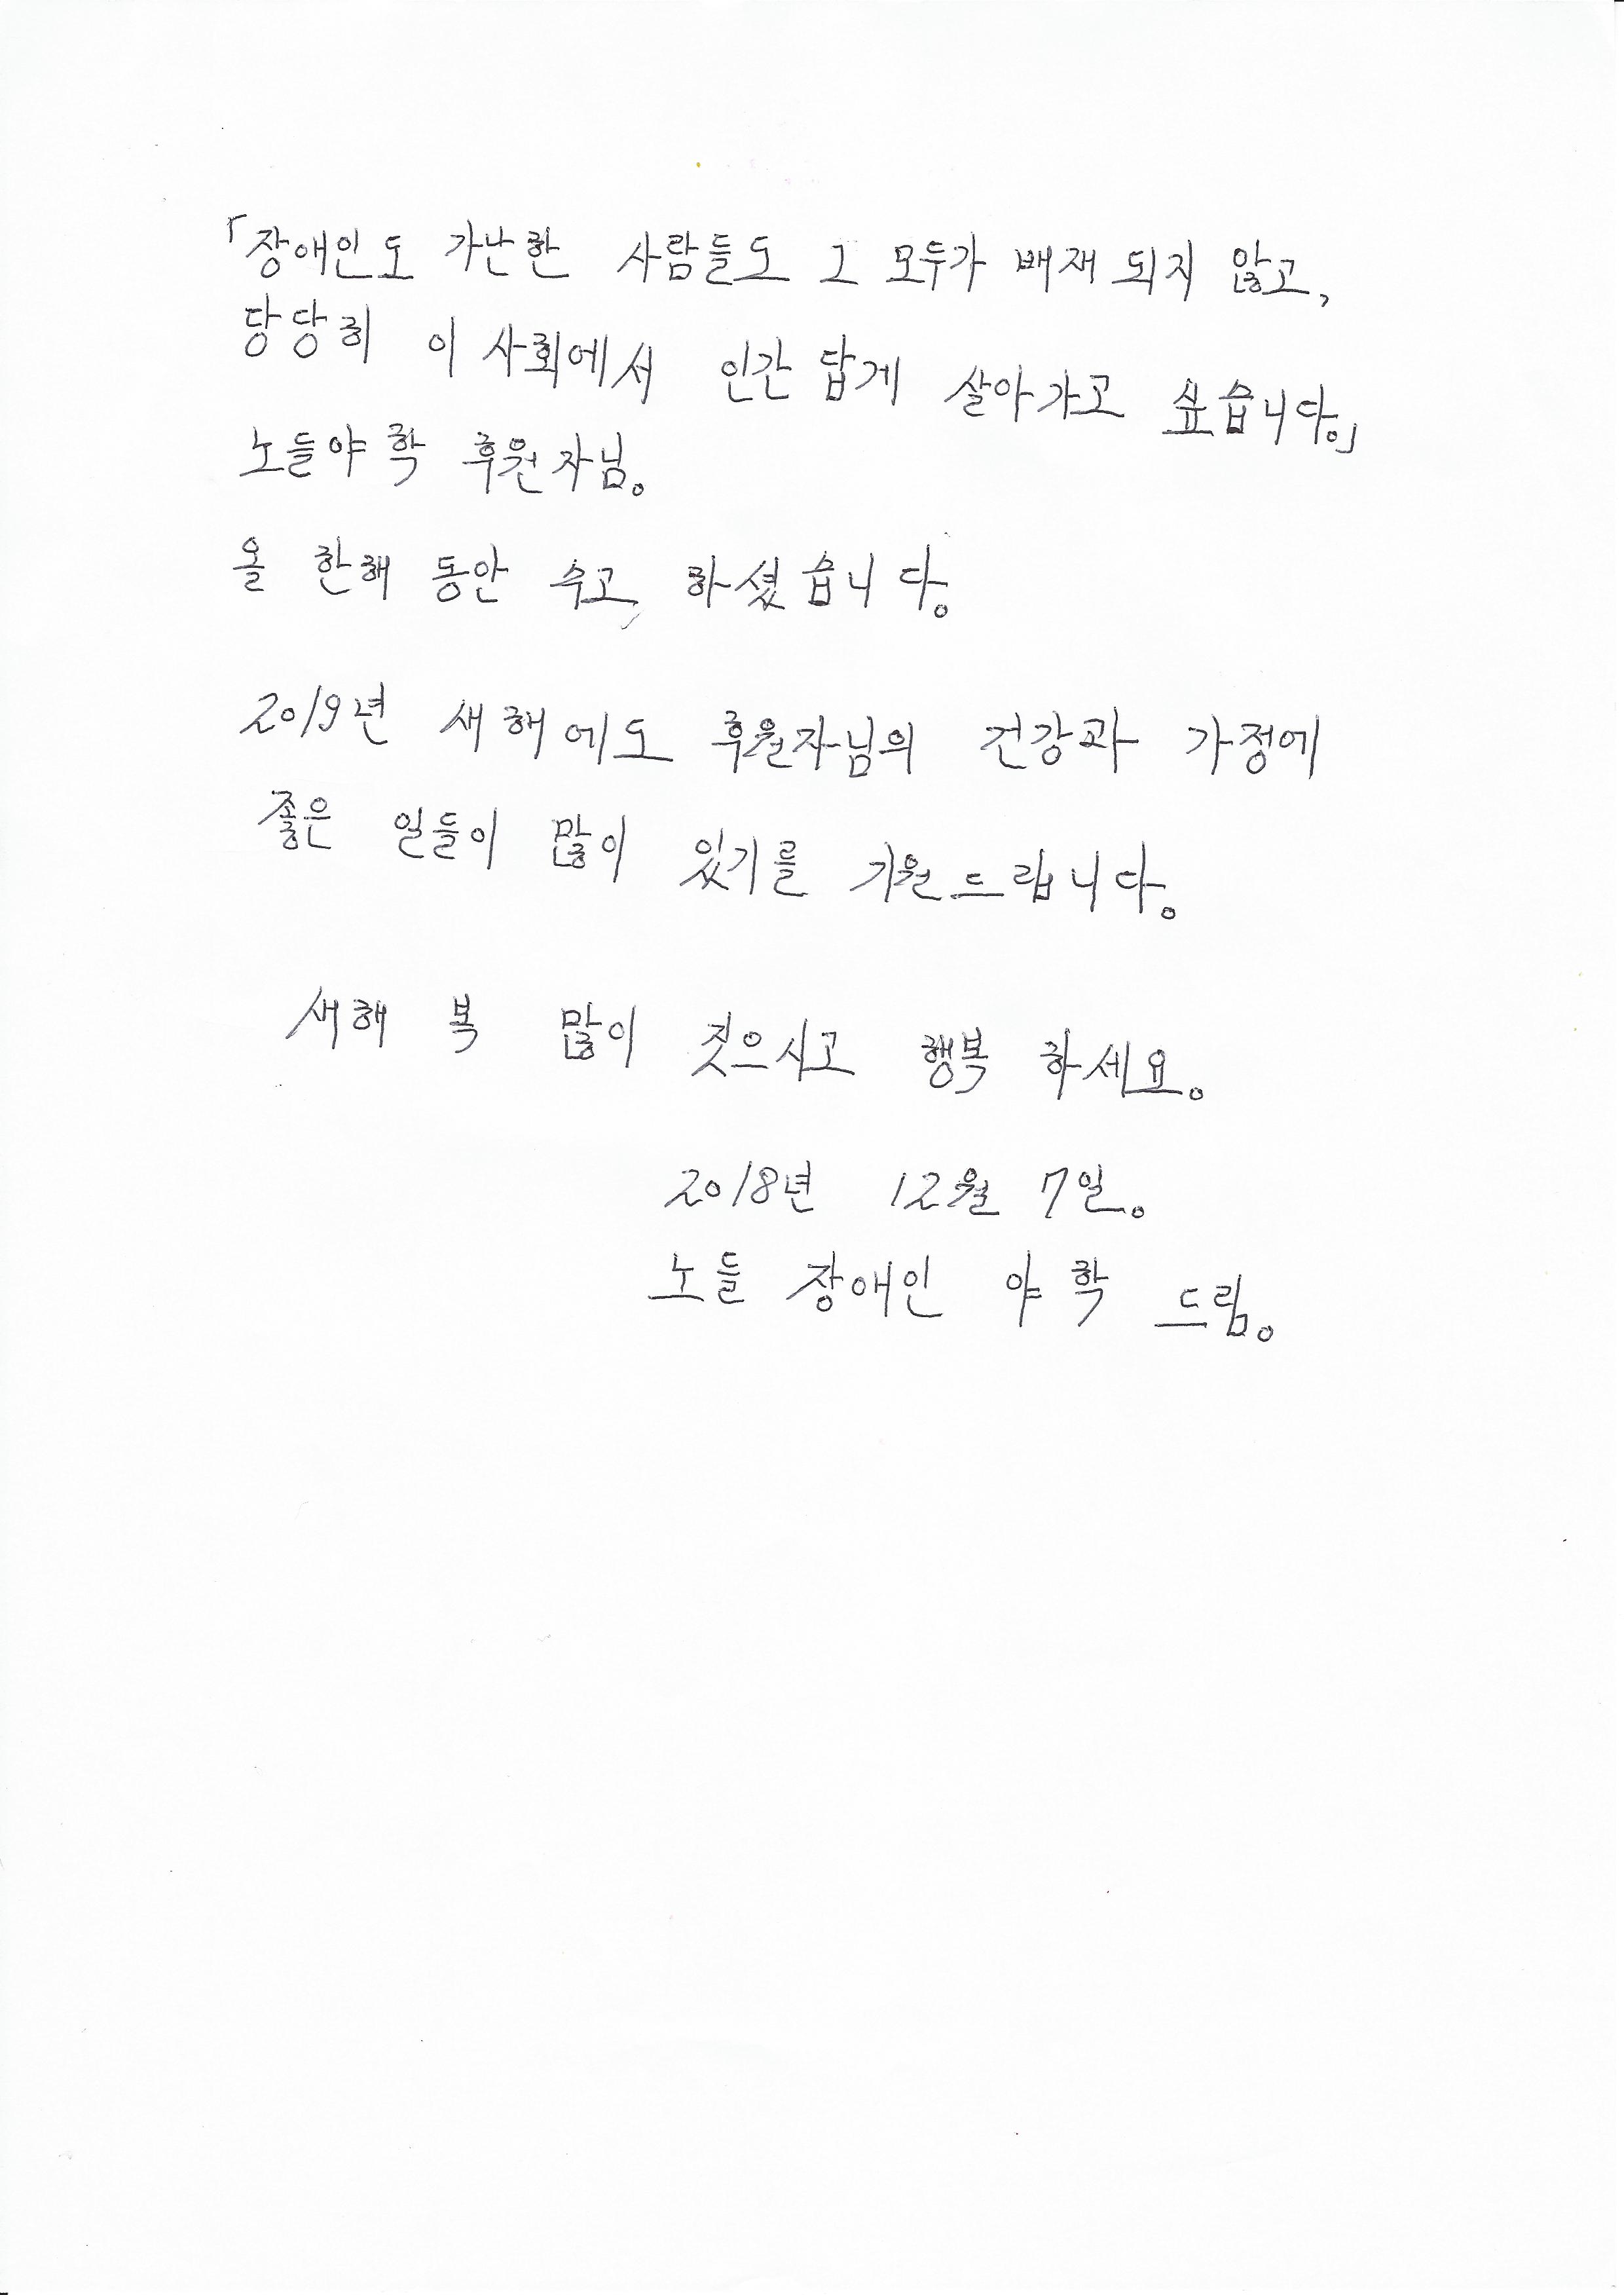 「장애인도 가난한 사람들도 그 모두가 배재 되지 않고,
당당히 이 사회에서 인간 답게 살아가고 싶습니다.」
노들야학 후원자님.
올 한해 동안 수고 하셨습니다.
2019년 새해에도 후원자님의 건강과 가정에
좋은 일들이 많이 있기를 기원드립니다.
새해 복 많이 짓으시고 행복 하세요.
2018년 12월 7일.
노들 장애인 야학 드림.